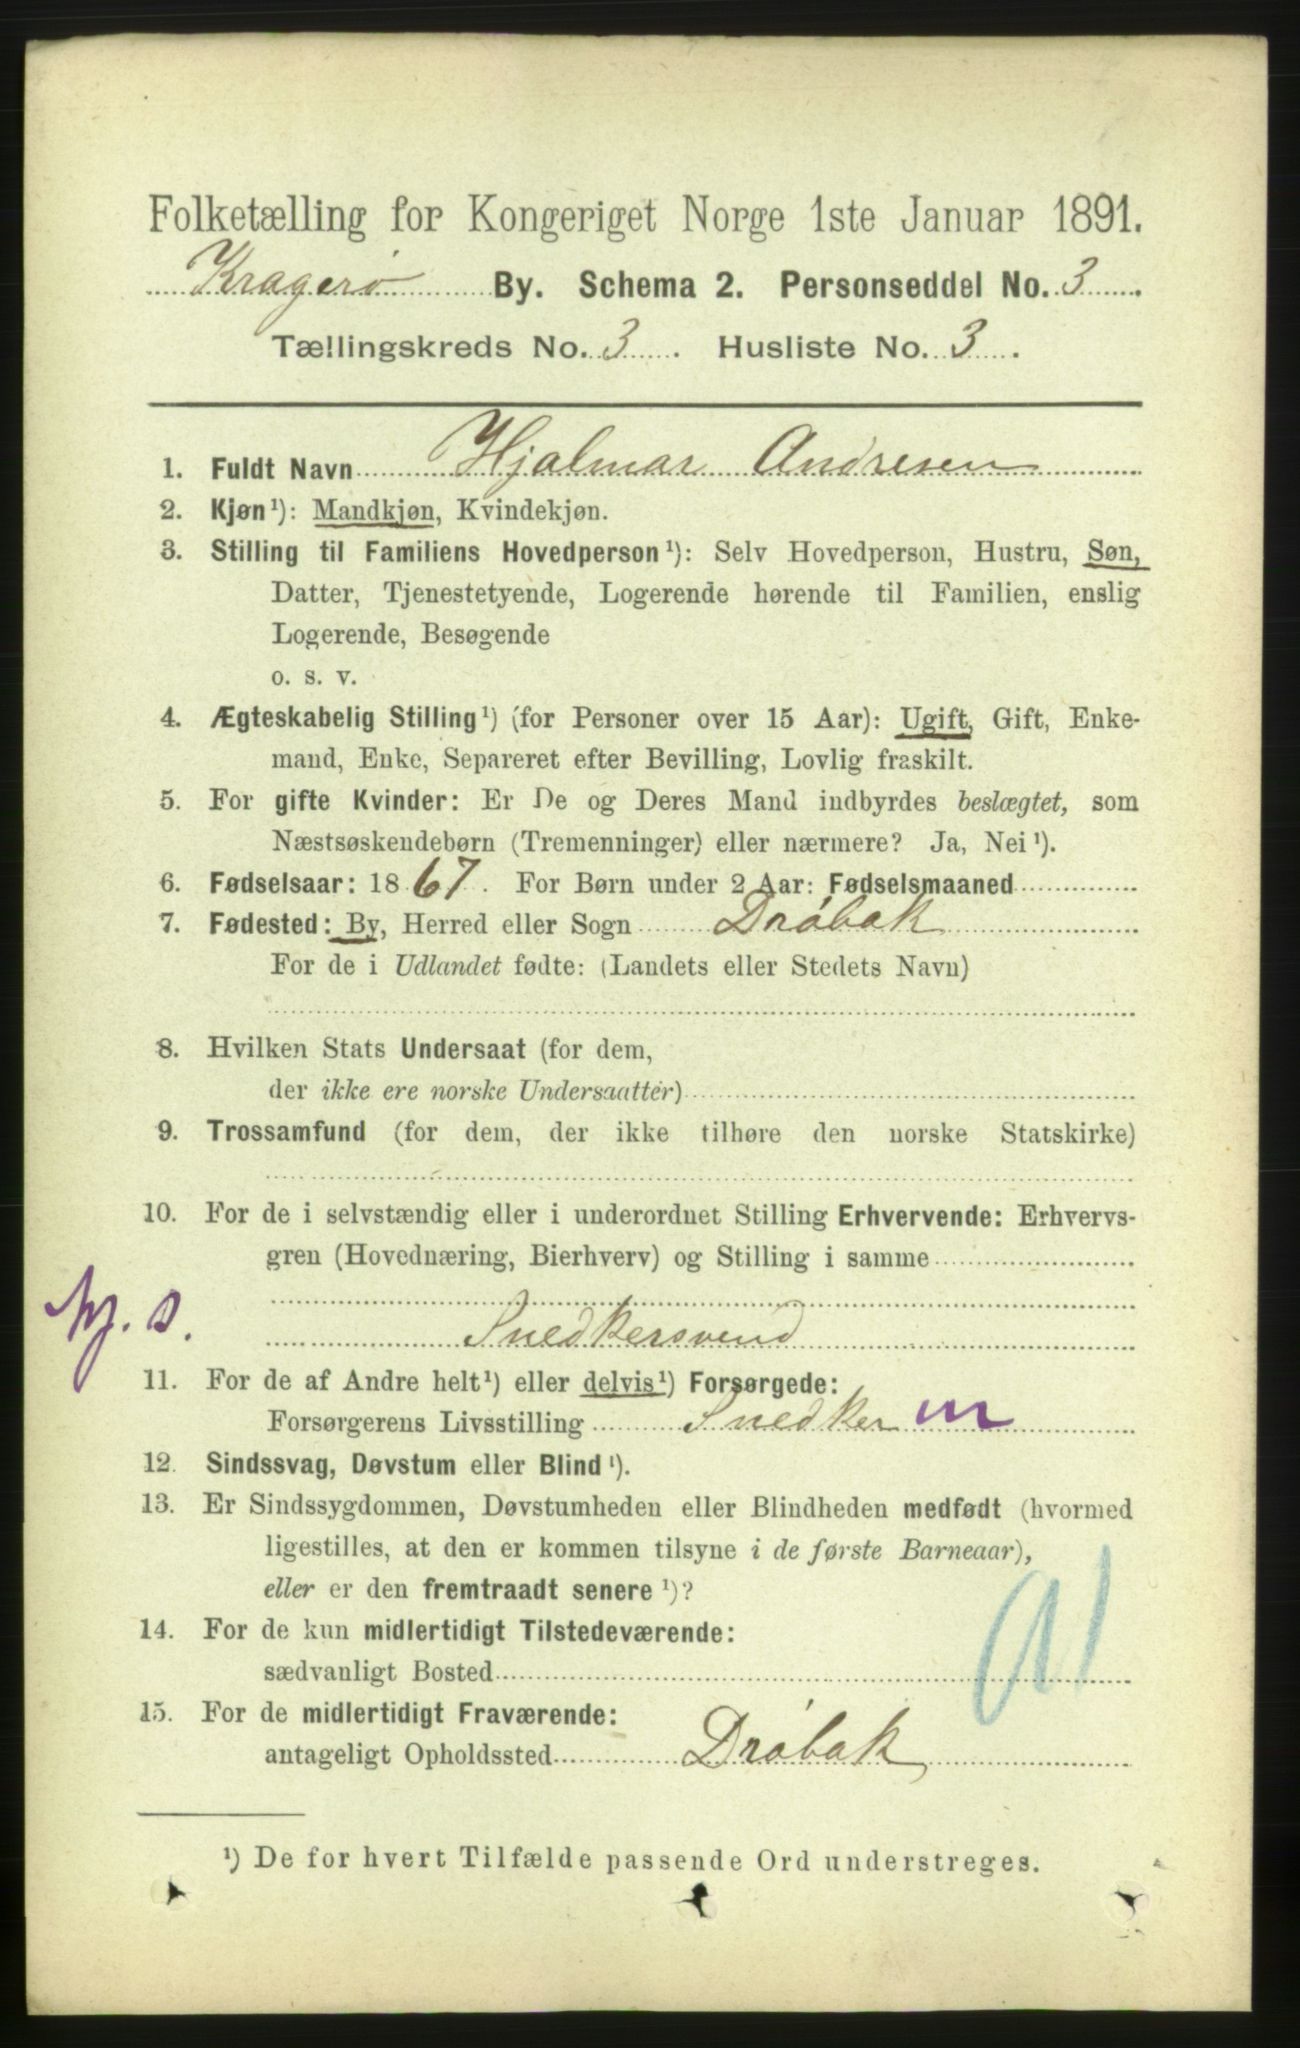 Folketælling for Kongeriget Norge 1ste Januar 1891.
Kragerø By. Schema 2. Personseddel No. 3.
Tællingskreds No. 3. Husliste No. 3.
1. Fuldt Navn Hjalmar Andresen
2. Kjøn¹): Mandkjøn, Kvindekjøn.
3. Stilling til Familiens Hovedperson¹): Selv Hovedperson, Hustru, Søn,
Datter, Tjenestetyende, Logerende hørende til Familien, enslig
Logerende, Besøgende
o. s. v.
4. Ægteskabelig Stilling¹) (for Personer over 15 Aar): Ugift, Gift, Enke-
mand, Enke, Separeret efter Bevilling, Lovlig fraskilt.
5. For gifte Kvinder: Er De og Deres Mand indbyrdes beslægtet, som
Næstsøskendebørn (Tremenninger) eller nærmere? Ja, Nei¹).
6. Fødselsaar: 1867. For Børn under 2 Aar: Fødselsmaaned
7. Fødested: By, Herred eller Sogn Drøbak
For de i Udlandet fødte: (Landets eller Stedets Navn)
8. Hvilken Stats Undersaat (for dem,
der ikke ere norske Undersaatter)
9. Trossamfund (for dem, der ikke tilhøre den norske Statskirke)
10. For de i selvstændig eller i underordnet Stilling Erhvervende: Erhvervs-
gren (Hovednæring, Bierhverv) og Stilling i samme
Snedkersvend
11. For de af Andre helt¹) eller delvis¹) Forsørgede:
Forsørgerens Livsstilling Snedker m
12. Sindssvag, Døvstum eller Blind¹).
13. Er Sindssygdommen, Døvstumheden eller Blindheden medfødt (hvormed
ligestilles, at den er kommen tilsyne i de første Barneaar),
eller er den fremtraadt senere¹)?
14. For de kun midlertidigt Tilstedeværende:
sædvanligt Bosted
15. For de midlertidigt Fraværende:
antageligt Opholdssted Drøbak
¹) De for hvert Tilfælde passende Ord understreges.